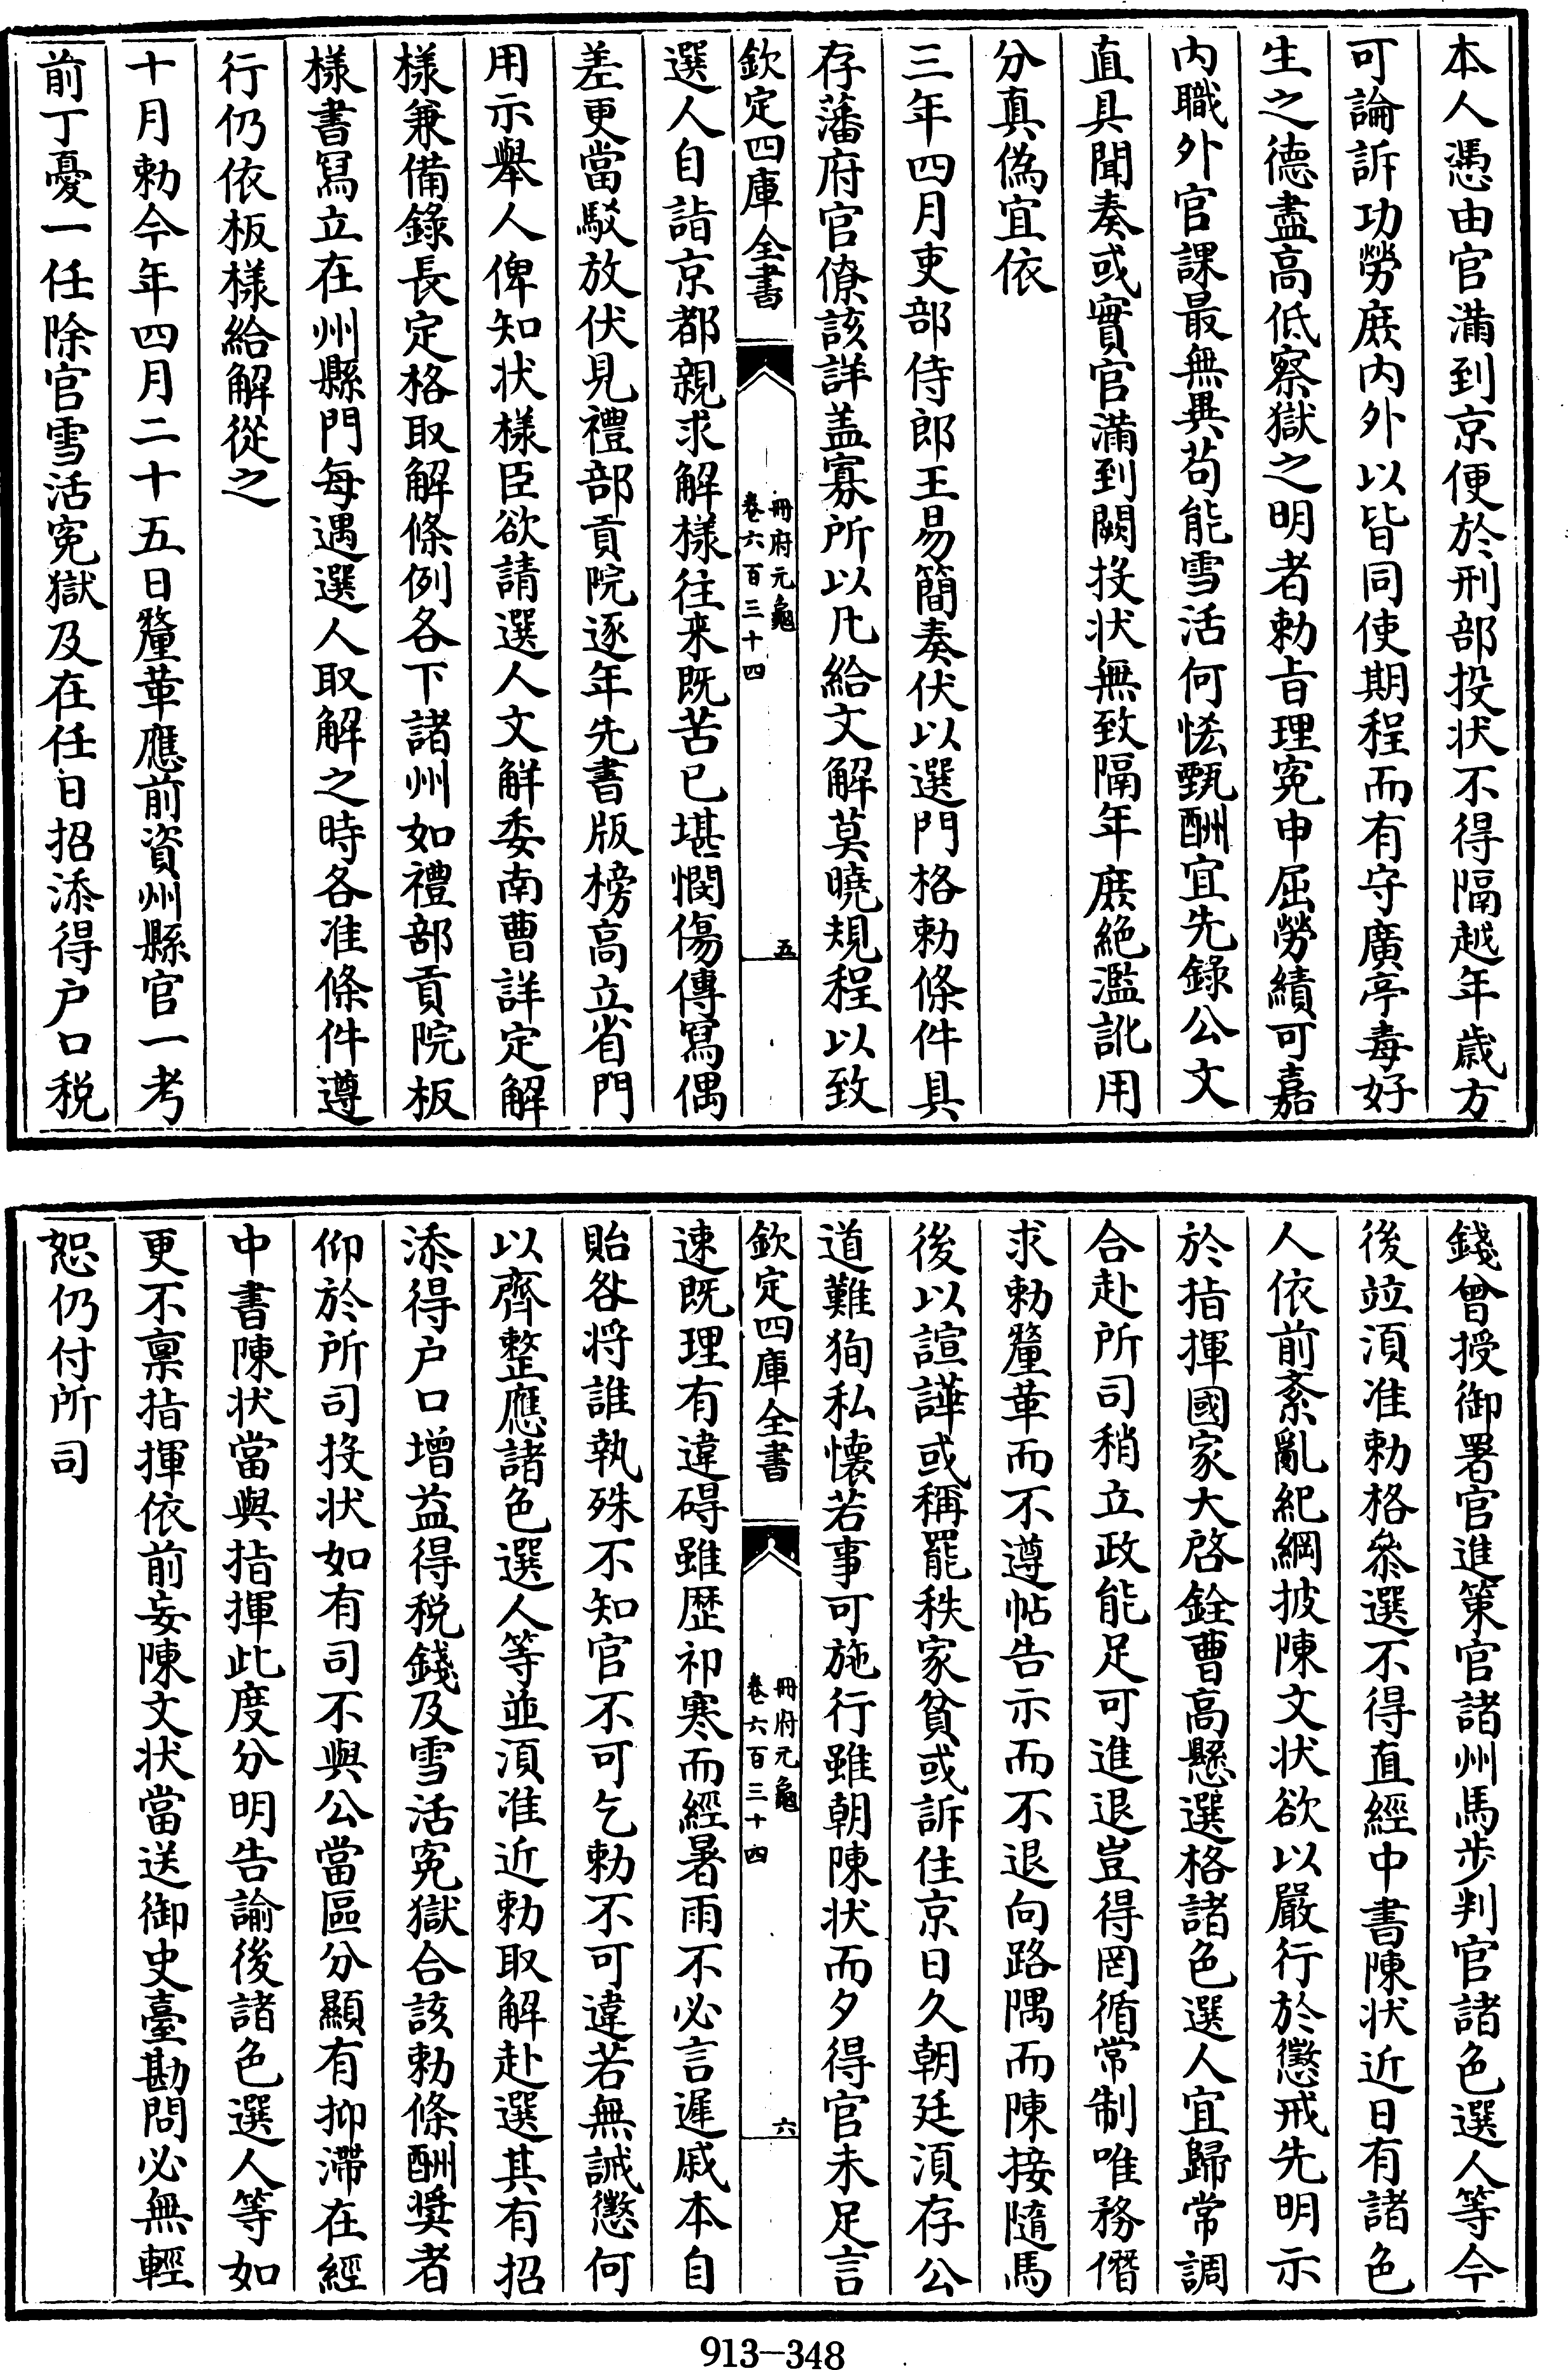 本人憑由官滿到京便於刑部投状不得隔越年歳方
可論訴功勞庻内外以皆同使期程而有守廣亭毒好
生之德盡高低察獄之明者勅㫖理寃申屈勞績可嘉
内職外官課最無異苟能雪活何恡甄酬宜先錄公文
直具聞奏或實官滿到闕投状無致隔年庻絶濫訛用
分真偽宜依
三年四月吏部侍郎王易簡奏伏以選門格勅條件具
存藩府官僚該詳盖寡所以凡給文解莫曉規程以致
欽定四庫全書
冊府元龜
卷六百三十四
五
選人自詣京都親求解様往来既苦已堪憫傷傳寫偶
差更當駁放伏見禮部貢院逐年先書版榜高立省門
用示舉人俾知状様臣欲請選人文解委南曹詳定解
様兼備錄長定格取解條例各下諸州如禮部貢院板
様書寫立在州縣門每遇選人取解之時各准條件遵
行仍依板樣給解從之
十月勅今年四月二十五日釐革應前資州縣官一考
前丁憂一任除官雪活寃獄及在任日招添得户口税
錢曾授御署官進策官諸州馬步判官諸色選人等今
後竝湏准勅格叅選不得直經中書陳状近日有諸色
人依前紊亂紀綱披陳文状欲以嚴行於懲戒先明示
於指揮國家大啓銓曹高懸選格諸色選人宜歸常調
合赴所司稍立政能足可進退豈得罔循常制唯務僭
求勅釐革而不遵帖告示而不退向路隅而陳接隨馬
後以諠譁或稱罷秩家貧或訴住京日久朝廷湏存公
道難狥私懐若事可施行雖朝陳状而夕得官未足言
欽定四庫全書
冊府元龜
卷六百三十四
六
速既理有違碍雖歴祁寒而經暑雨不必言遲戚本自
貽咎将誰執殊不知官不可乞勅不可違若無誡懲何
以齊整應諸色選人等並湏准近勅取解赴選其有招
添得户口增益得税錢及雪活寃獄合該勅條酬奨者
仰於所司投状如有司不與公當區分顯有抑滯在經
中書陳状當與指揮此度分明告諭後諸色選人等如
更不禀指揮依前妄陳文状當送御史臺勘問必無輕
恕仍付所司
913—348